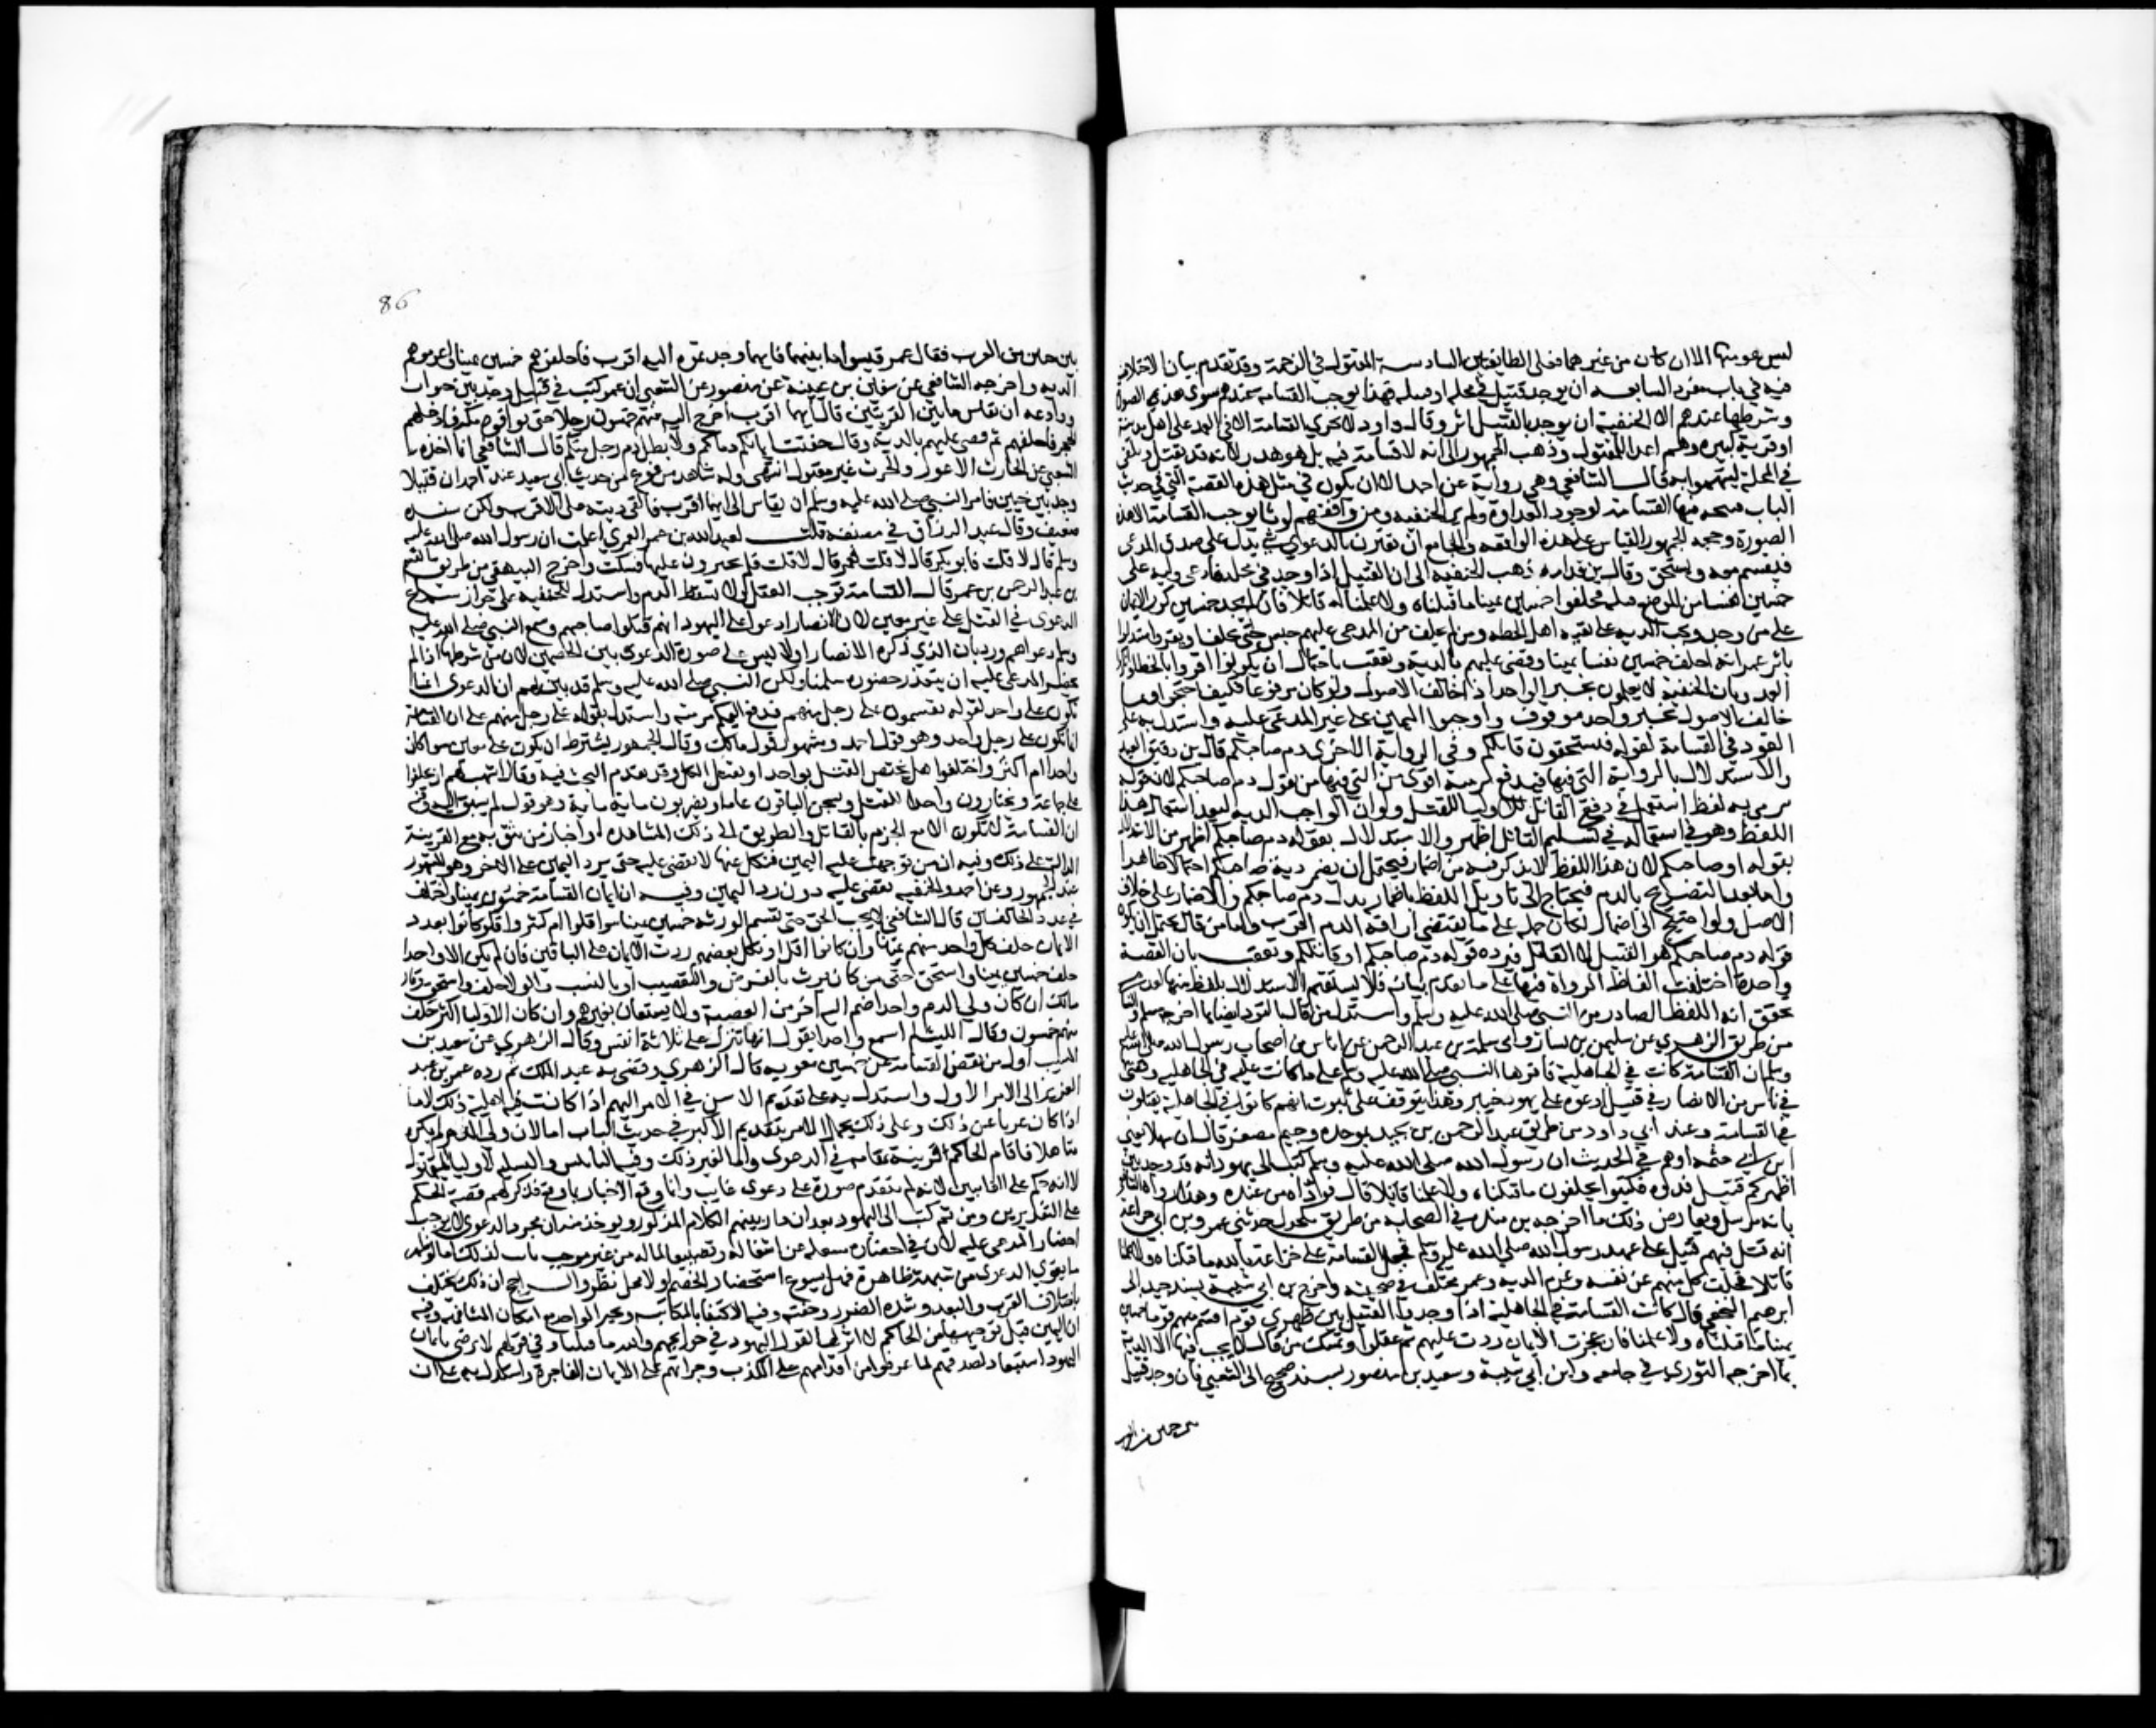 ليس هو منها الا ان كان من غيرهما فعلى الطايفتين السادسة المقتول في الزحمة وقد تقدم بيان الاختلاف
فيه في باب مفرد السابعة ان يوجد قتيل في محلة او قبيلة فهذا يوجب القسامة عندهم سوى هذه الصورة
وشرطها عندهم الا الحنفية ان يوجد بالقتيل اثر وقال داود لا تجري القسامة الا في العمد على اهل مدينة
او قرية كبيرة وهم اعدا للمقتول وذهب الجمهور الى انه لا قسامة فيه بل هو هدر لانه قد يقتل ويلقى
في المحلة ليتهموا به قال الشافعي وهي رواية عن احمد الا ان يكون في مثل هذه القصة التي في حديث
الباب فيتجه فيها القسامة لوجود العداوة ولم ير الحنفية ومن وافقهم لوثا يوجب القسامة الا هذه
الصورة وحجة الجمهور القياس على هذه الواقعة والجامع ان يقترن بالدعوى شي يدل على صدق المدعي
فيقسم معه ويستحق وقال بن قدامة ذهب الحنفية الى ان القتيل اذا وجد في محل فادعى وليه على
خمسين نفسا من الموضع قتله فحلفوا خمسين يمينا ما قتلناه ولا علمنا له قاتلا فان لم يجد خمسين كرر الايمان
على من وجد ويجب الدية على بقية اهل الخطة ومن لم يحلف من المدعى عليهم حبس حتى يحلف او يقر واستدلوا
باثر عمر انه احلف خمسين نفسا يمينا وقضى عليهم بالدية وتعقب باحتمال ان يكونوا اقروا بالخطا وانكروا
العمد وبان الحنفية لا يعملون بخبر الواحد اذا خالف الاصول ولو كان مرفوعا فكيف احتجوا بما
خالف الاصول بخبر واحد موقوف واوجبوا اليمين على غير المدعى عليه واستدل به على
القود في القسامة لقوله فتستحقون قاتلكم وفي الرواية الاخرى دم صاحبكم قال بن دقيق العيد
والاستدلال بالرواية التي فيها فيدفع برمته اقوى من التي فيها من قوله دم صاحبكم لان قوله
برمته لفظ استعمل في دفع القاتل للاوليا للقتل ولو ان الواجب الدية لبعد استعمال هذا
اللفظ وهو في استعماله في تسليم القاتل اظهر والاستدلال بقوله دم صاحبكم اظهر من الاستدلال
بقوله او صاحبكم لان هذا اللفظ لا بد فيه من اضمار فيحتمل ان يضمر دية صاحبكم احتمالا ظاهرا
واما بعد التصريح بالدم فيحتاج الى تاويل اللفظ باضمار بدل دم صاحبكم والاضمار على خلاف
الاصل ولو احتيج الى اضمار لكان حمله على ما يقتضي اراقة الدم اقرب واما من قال يحتمل ان يكون
قوله دم صاحبكم هو القتيل لا القاتل فيرده قوله دم صاحبكم او قاتلكم وتعقب بان القصة
واحدة اختلفت الفاظ الرواة فيها على ما تقدم بيانه فلا يستقيم الاستدلال بلفظ منها لعدم
تحقق انه اللفظ الصادر من النبي صلى الله عليه وسلم واستدل من قال بالقود ايضا بما اخرجه مسلم والنسائي
من طريق الزهري عن سليمن بن يسار وابي سلمة بن عبد الرحمن عن اناس من اصحاب رسول الله صلى الله عليه
وسلم ان القسامة كانت في الجاهلية فاقرها النبي صلى الله عليه وسلم على ما كانت عليه في الجاهلية وقضى
في ناس من الانصار في قتيل ادعوه على يهود خيبر وهذا يتوقف على ثبوت انهم كانوا في الجاهلية يقتلون
في القسامة وعند ابي داود من طريق عبد الرحمن بن بجيد بموحدة وجيم مصغر قال ان سهلا يعني
ابن ابي حثمة اوهم في الحديث ان رسول الله صلى الله عليه وسلم كتب الى يهود انه قد وجد بين
اظهركم قتيل فدوه فكتبوا يحلفون ما قتلناه ولا علمنا قاتلا قال فوداه من عنده وهذا رده الشافعي
بانه مرسل ويعارض ذلك ما اخرجه بن منده في الصحابة من طريق مكحول حدثني عمرو بن ابي خزاعة
انه قتل فيهم قتيل على عهد رسول الله صلى الله عليه وسلم فجعل القسامة على خزاعة بالله ما قتلناه ولا علمنا
قاتلا فحلف كل منهم عن نفسه وغرم الدية وعمرو مختلف في صحبته واخرج بن ابي شيبة بسند جيد الى
ابرهيم النخعي قال كانت القسامة في الجاهلية اذا وجد القتيل بين ظهري قوم اقسم منهم خمسون خمسين
يمينا ما قتلناه ولا علمنا فان عجزت الايمان ردت عليهم ثم عقلوا وتمسك من قال لا يجب فيها الا الدية
بما اخرجه الثوري في جامعه وابن ابي شيبة وسعيد بن منصور بسند صحيح الى الشعبي قال وجد قتيل
86
بين حيين من العرب فقال عمر قيسوا ما بينهما فايهما وجدتموه اليه اقرب فاحلفوهم خمسين يمينا واغرموهم
الدية واخرجه الشافعي عن سفين بن عيينة عن منصور عن الشعبي ان عمر كتب في قتيل وجد بين خيوان
ووادعة ان يقاس ما بين القريتين قال فايهما اقرب اخرج اليه منهم خمسون رجلا حتى يوافوه مكة فادخلهم
الحجر فاحلفهم ثم قضى عليهم بالدية وقال حقنت ايمانكم دماءكم ولا يطل دم رجل مسلم قال الشافعي انما اخذه
الشعبي عن الحارث الاعور والحرث غير مقبول انتهى وله شاهد مرفوع من حديث ابي سعيد عند احمد ان قتيلا
وجد بين حيين فامر النبي صلى الله عليه وسلم ان يقاس الى ايهما اقرب فالقى ديته على الاقرب ولكن سنده
ضعيف وقال عبد الرزاق في مصنفه قلت لعبيد الله بن عمر العمري اعلمت ان رسول الله صلى الله عليه
وسلم قال لا قلت فابو بكر قال لا قلت فعمر قال لا قلت فلم تجترون عليها فسكت واخرج البيهقي من طريق القسم
بن عبد الرحمن بن عمر قال القسامة توجب العقل ولا تسقط الدم واستدل به الحنفية على جواز سماع
الدعوى في القتل على غير معين لان الانصار ادعوا على اليهود انهم قتلوا صاحبهم وسمع النبي صلى الله عليه
وسلم دعواهم ورد بان الذي ذكره الانصار اولا ليس على صورة الدعوى بين الخصمين لان من شرطها اذا لم
يحضر المدعى عليه ان يتعذر حضوره سلمنا ولكن النبي صلى الله عليه وسلم قد بين لهم ان الدعوى انما
تكون على واحد لقوله تقسمون على رجل منهم فيدفع اليكم برمته واستدل بقوله على رجل منهم على ان القسامة
انما تكون على رجل واحد وهو قول احمد ومشهور قول مالك وقال الجمهور يشترط ان يكون على معين سوا كان
واحدا ام اكثر واختلفوا هل يختص القتل بواحد او يقتل الكل وقد تقدم البحث فيه وقال اشهب لهم ان يحلفوا
على جماعة ويختارون واحدا للقتل ويسجن الباقون عاما ويضربون ماية ماية وهو قول لم يسبق اليه وفيه
ان القسامة لا تكون الا مع الجزم بالقاتل والطريق الى ذلك المشاهدة او اخبار من يثق به مع القرينة
الدالة على ذلك وفيه ان من توجهت عليه اليمين فنكل عنها لا يقضى عليه حتى يرد اليمين على الاخر وهو المشهور
عند الجمهور وعن احمد والحنفية يقضى عليه دون رد اليمين وفيه ان ايمان القسامة خمسون يمينا واختلف
في عدد الحالفين قال الشافعي لا يجب الحق حتى يقسم الورثة خمسين يمينا سوا قلوا ام كثروا فلو كانوا بعدد
الايمان حلف كل واحد منهم يمينا وان كانوا اقل او نكل بعضهم ردت الايمان على الباقين فان لم يكن الا واحدا
حلف خمسين يمينا واستحق حتى من كان يرث بالفرض والتعصيب او بالنسب والولا حلف واستحق وقال
مالك ان كان ولي الدم واحدا ضم اليه اخر من العصبة ولا يستعان بغيرهم وان كان الاوليا اكثر حلف
منهم خمسون وقال الليث لم اسمع واحدا يقول انها تنزل على ثلاثة انفس وقال الزهري عن سعيد بن
المسيب اول من نقص القسامة عن خمسين معويه قال الزهري وقضى به عبد الملك ثم رده عمر بن عبد
العزيز الى الامر الاول واستدل به على تقديم الاسن في الامر المهم اذا كانت فيه اهلية ذلك لا ما
اذا كان عريا عن ذلك وعلى ذلك يحمل الامر بتقديم الاكبر في حديث الباب اما لان ولي الدم لم يكن
متاهلا فاقام الحاكم قريبه مقامه في الدعوى واما لغير ذلك وفيه التانيس والتسلية لاوليا المقتول
لا انه حكم على الغايبين لانه لم يتقدم صورة على دعوى غايب وانما وقع الاخبار بما وقع فذكر لهم قصة الحكم
على التقديرين ومن ثم كتب الى اليهود بعد ان دار بينهم الكلام المذكور ويوخذ منه ان مجرد الدعوى لا يوجب
احضار المدعى عليه لان في احضاره مشغلة عن اشغاله وتضييعا لماله من غير موجب ثابت لذلك اما لو ظهر
ما يقوي الدعوى من شبهة ظاهرة فهل يسوغ استحضار الخصم او لا محل نظر والراجح ان ذلك يختلف
باختلاف القرب والبعد وشدة الضرر وخفته وفيه الاكتفا بالمكاتبة وبخبر الواحد مع امكان المشافهة وفيه
ان اليمين قبل توجيهها من الحاكم لا اثر لها لقول اليهود في جوابهم والله ما قتلنا وفي قولهم لا نرضى بايمان
اليهود استبعاد لصدقهم لما عرفوا من اقدامهم على الكذب وجراتهم على الايمان الفاجرة واستدل به على ان